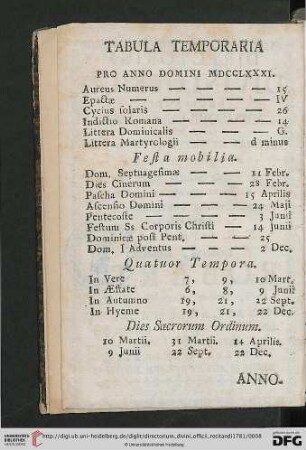 TABULA TEMPORARIA
PRO ANNO DOMINI MDCCLXXXI.
Aureus Numerus — — — — 15
Epactæ — — — — — IV
Cyclus solaris — — — — 26
Indictio Romana — — — — 14
Littera Dominicalis — — — G.
Littera Martyrologii — — — d minus
Festa mobilia.
Dom. Septuagesimæ — — — 11 Febr.
Dies Cinerum — — — — 28 Febr.
Pascha Domini — — — — 15 Aprilis
Ascensio Domini — — — — 24 Maji
Pentecoste — — — — 3 Junii
Festum Ss Corporis Christi — — 14 Junii
Dominicæ post Pent. — — — 25
Dom. I Adventus — — — — 2 Dec.
Quatuor Tempora.
In Vere 7, 9, 10 Mart.
In Æstate 6, 8, 9 Junii
In Autumno 19, 21, 22 Sept.
In Hyeme 19, 21, 22 Dec.
Dies Sacrorum Ordinum.
10 Martii. 31 Martii. 14 Aprilis.
9 Junii 22 Sept. 22 Dec.
ANNO.
UNIVERSITÄTS-BIBLIOTHEK HEIDELBERG
http://digi.ub.uni-heidelberg.de/diglit/directorium_divini_officii_recitandi1781/0008
© Universitätsbibliothek Heidelberg
DFG